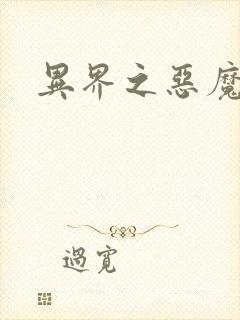 異界之惡魔
過寬